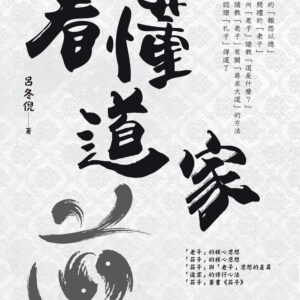 看懂道家
的「報怨以德」
問禮於「老子」
向「老子」請教「道是什麼？」
請教「老子」有關「尋求大道」的方法
認證「孔子」得道了
呂冬倪 著
「老子」的核心思想
「莊子」的核心思想
「莊子」與「老子」思想的差異
「道家」的修行心法
「莊子」著書《莊子》